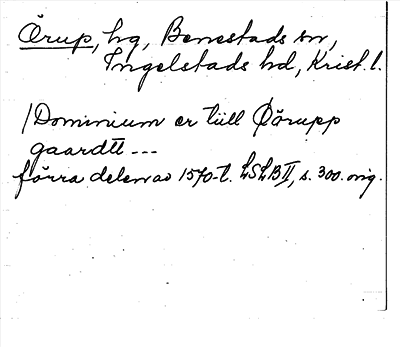 Örup, hg, Benestads sn,
Ingelstads hd, Krist. l.
/Dominium er tiill Öörupp
gaardtt ---
förra delen av 1570-t. LSLB II, s. 300. orig.